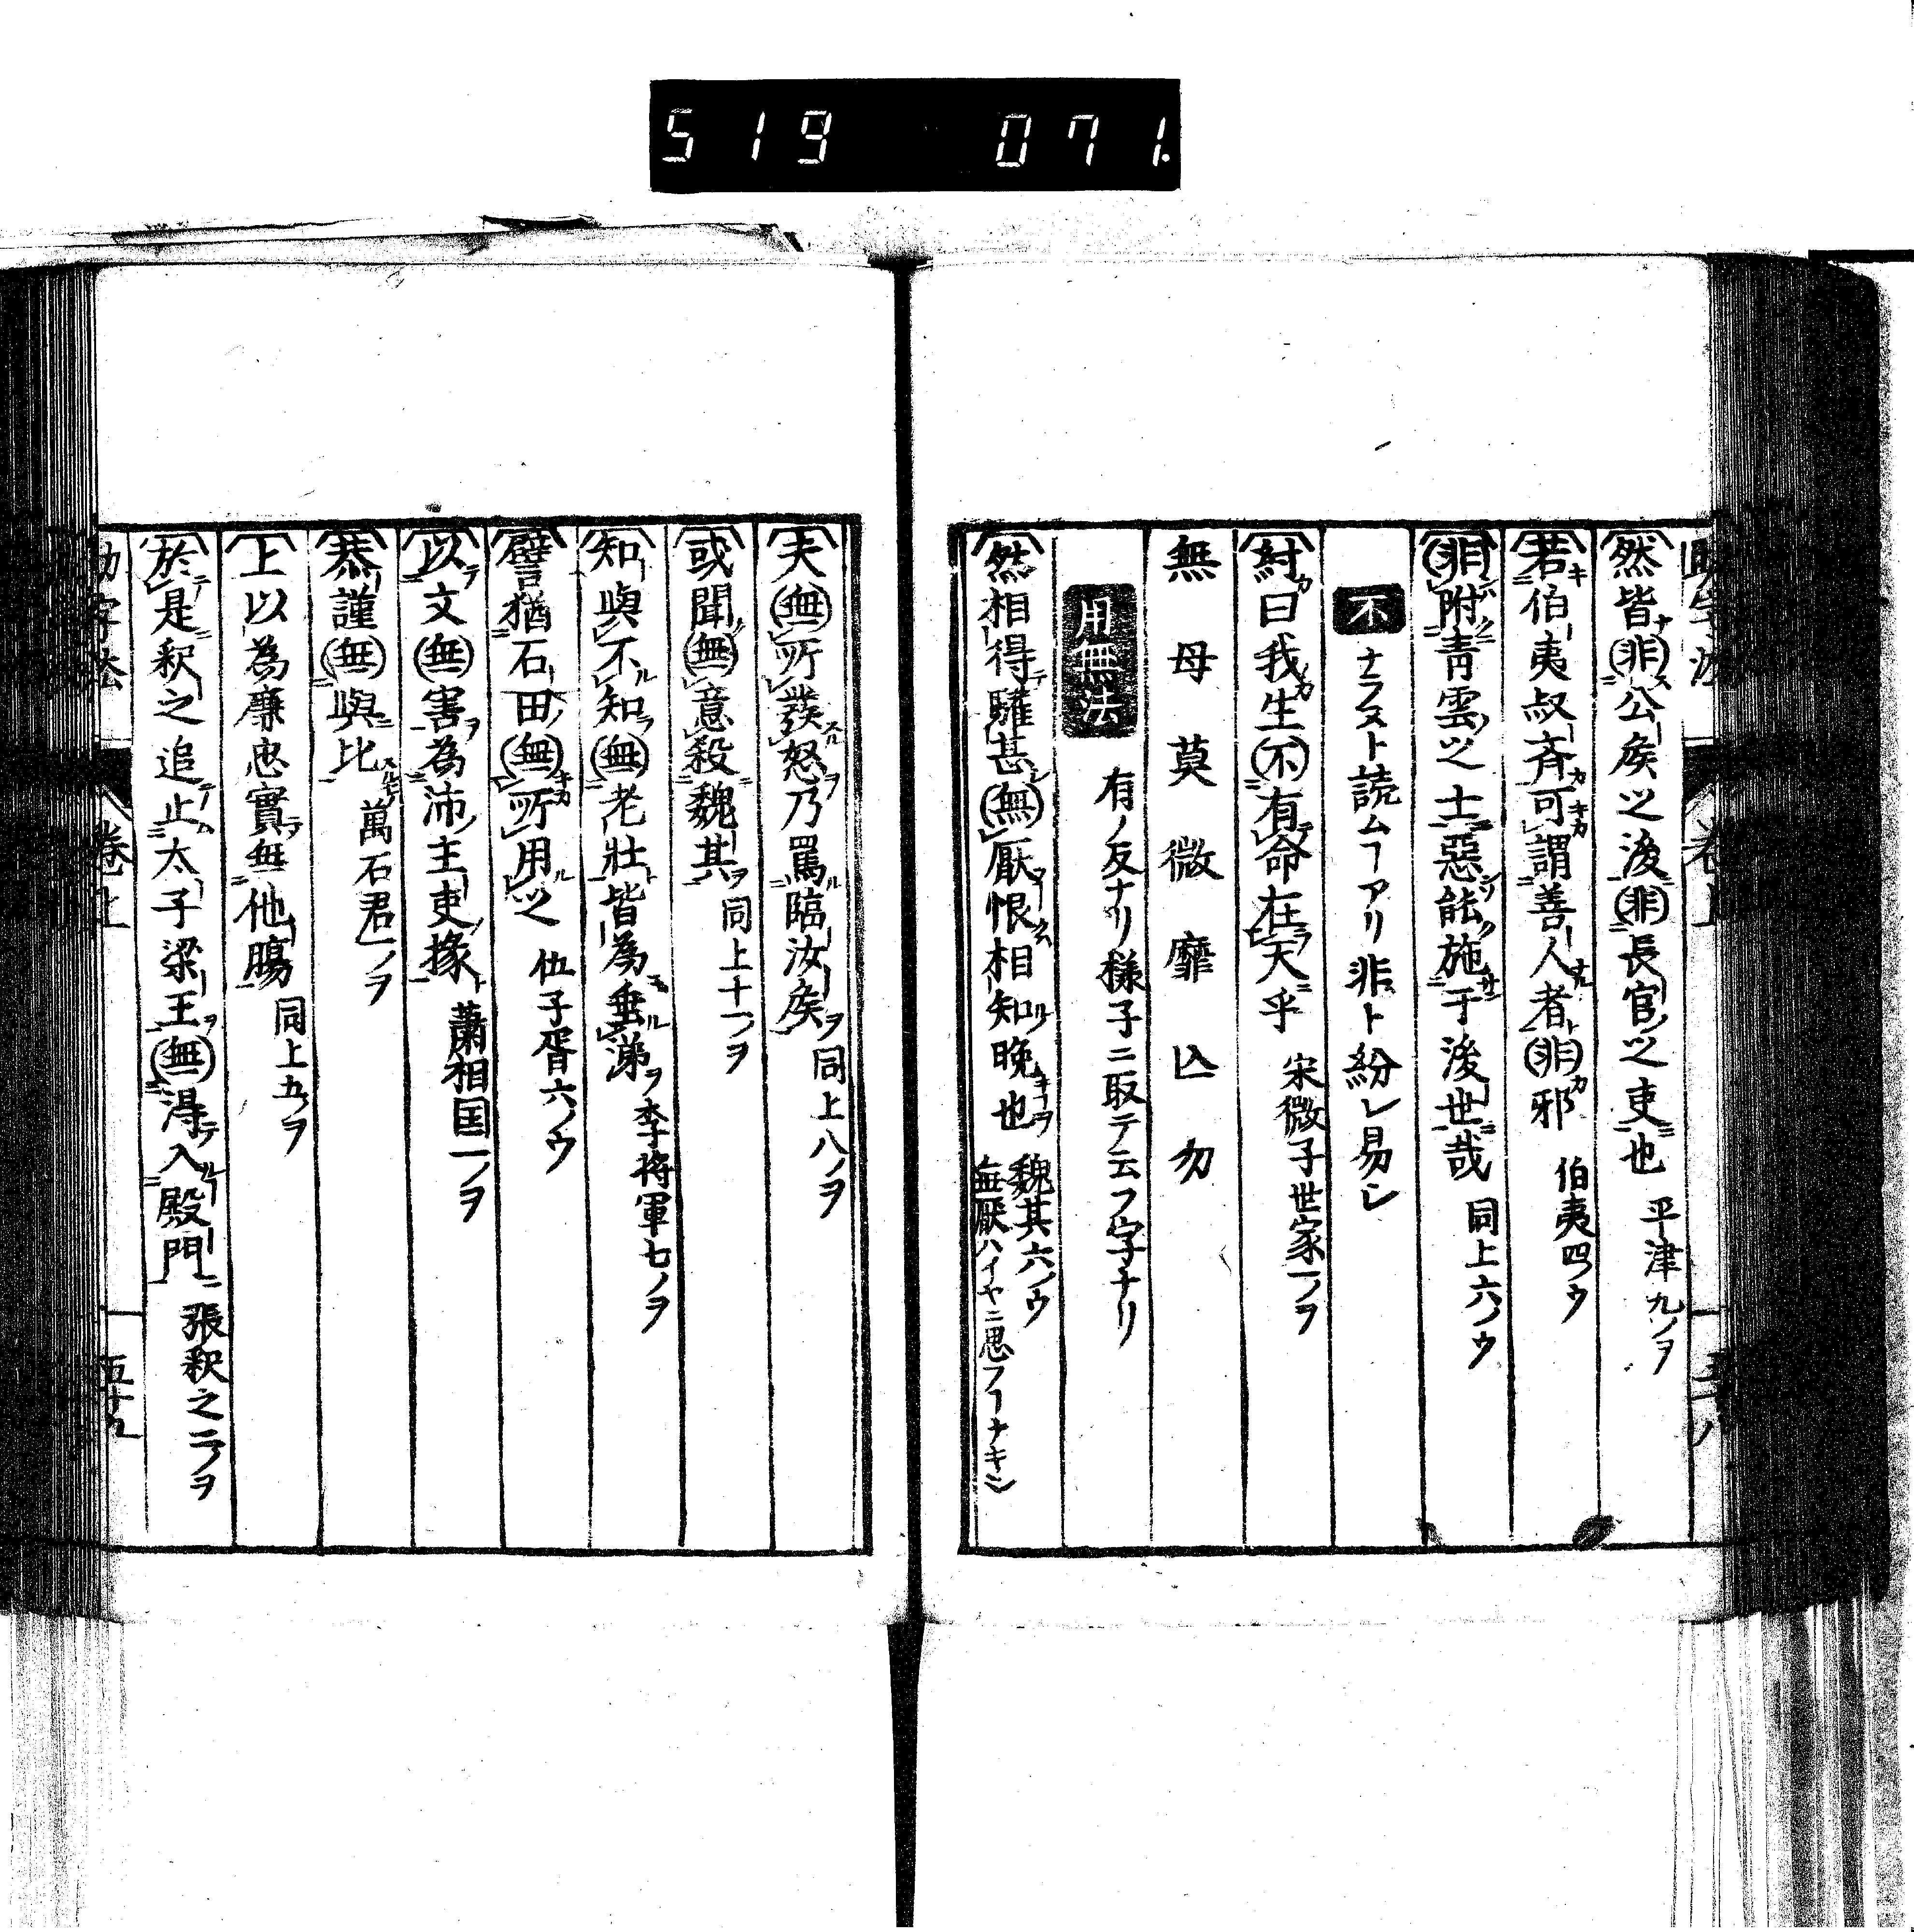 519 071.
然皆非公侯之後非長官之吏也 平津九ノヲ
若伯夷叔斉可謂善人者非邪 伯夷四ノウ
非附青雲之士惡能施于後世哉 同上六ノウ
不 ナラヌト読ムヿアリ非ト紛レ易シ
紂曰我生不有命在天乎 宋微子世家一ノヲ
無 毋 莫 微 靡 亾 勿
用無法 有ノ反ナリ様子ニ取テ云フ字ナリ
然相得驩甚無厭恨相知晩也 魏其六ノウ
無厭ハイヤニ思フヿナキ〆
夫無所發怒乃罵臨汝侯 同上八ノヲ
或聞無意殺魏其 同上十一ノヲ
知與不知無老壮皆為垂涕 李将軍七ノヲ
譬猶石田無所用之 伍子胥六ノウ
以文無害為沛主吏掾 蕭相国一ノヲ
恭謹無與比 萬石君一ノヲ
上以為廉忠實無他腸 同上五ノヲ
於是釈之追止太子梁王無淂入殿門 張釈之二ノヲ
卷上
五十九